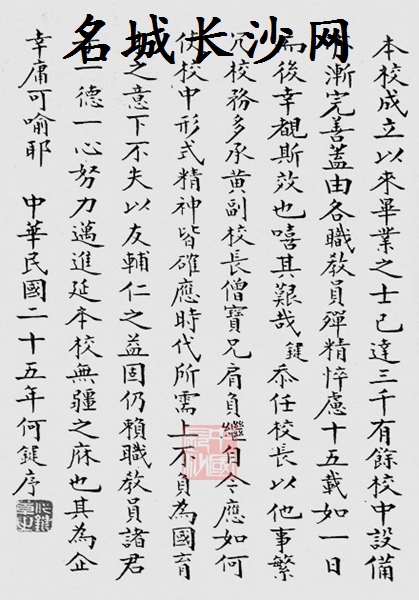 名城长沙网
本校成立以來畢業之士已達三千有餘校中設備
漸完善蓋由各職教員殫精悴慮十五載如一日
而後幸覩斯效也嘻其艱哉 鍵忝任校長以他事繁
冗校務多承黃副校長僧寶兄肩負繼自今應如何
使校中形式精神皆確應時代所需上不負為國育
之意下不失以友輔仁之益固仍賴職教員諸君
一德一心努力邁進延本校無疆之庥也其為企
幸庸可喻耶 中華民國二十五年何鍵序